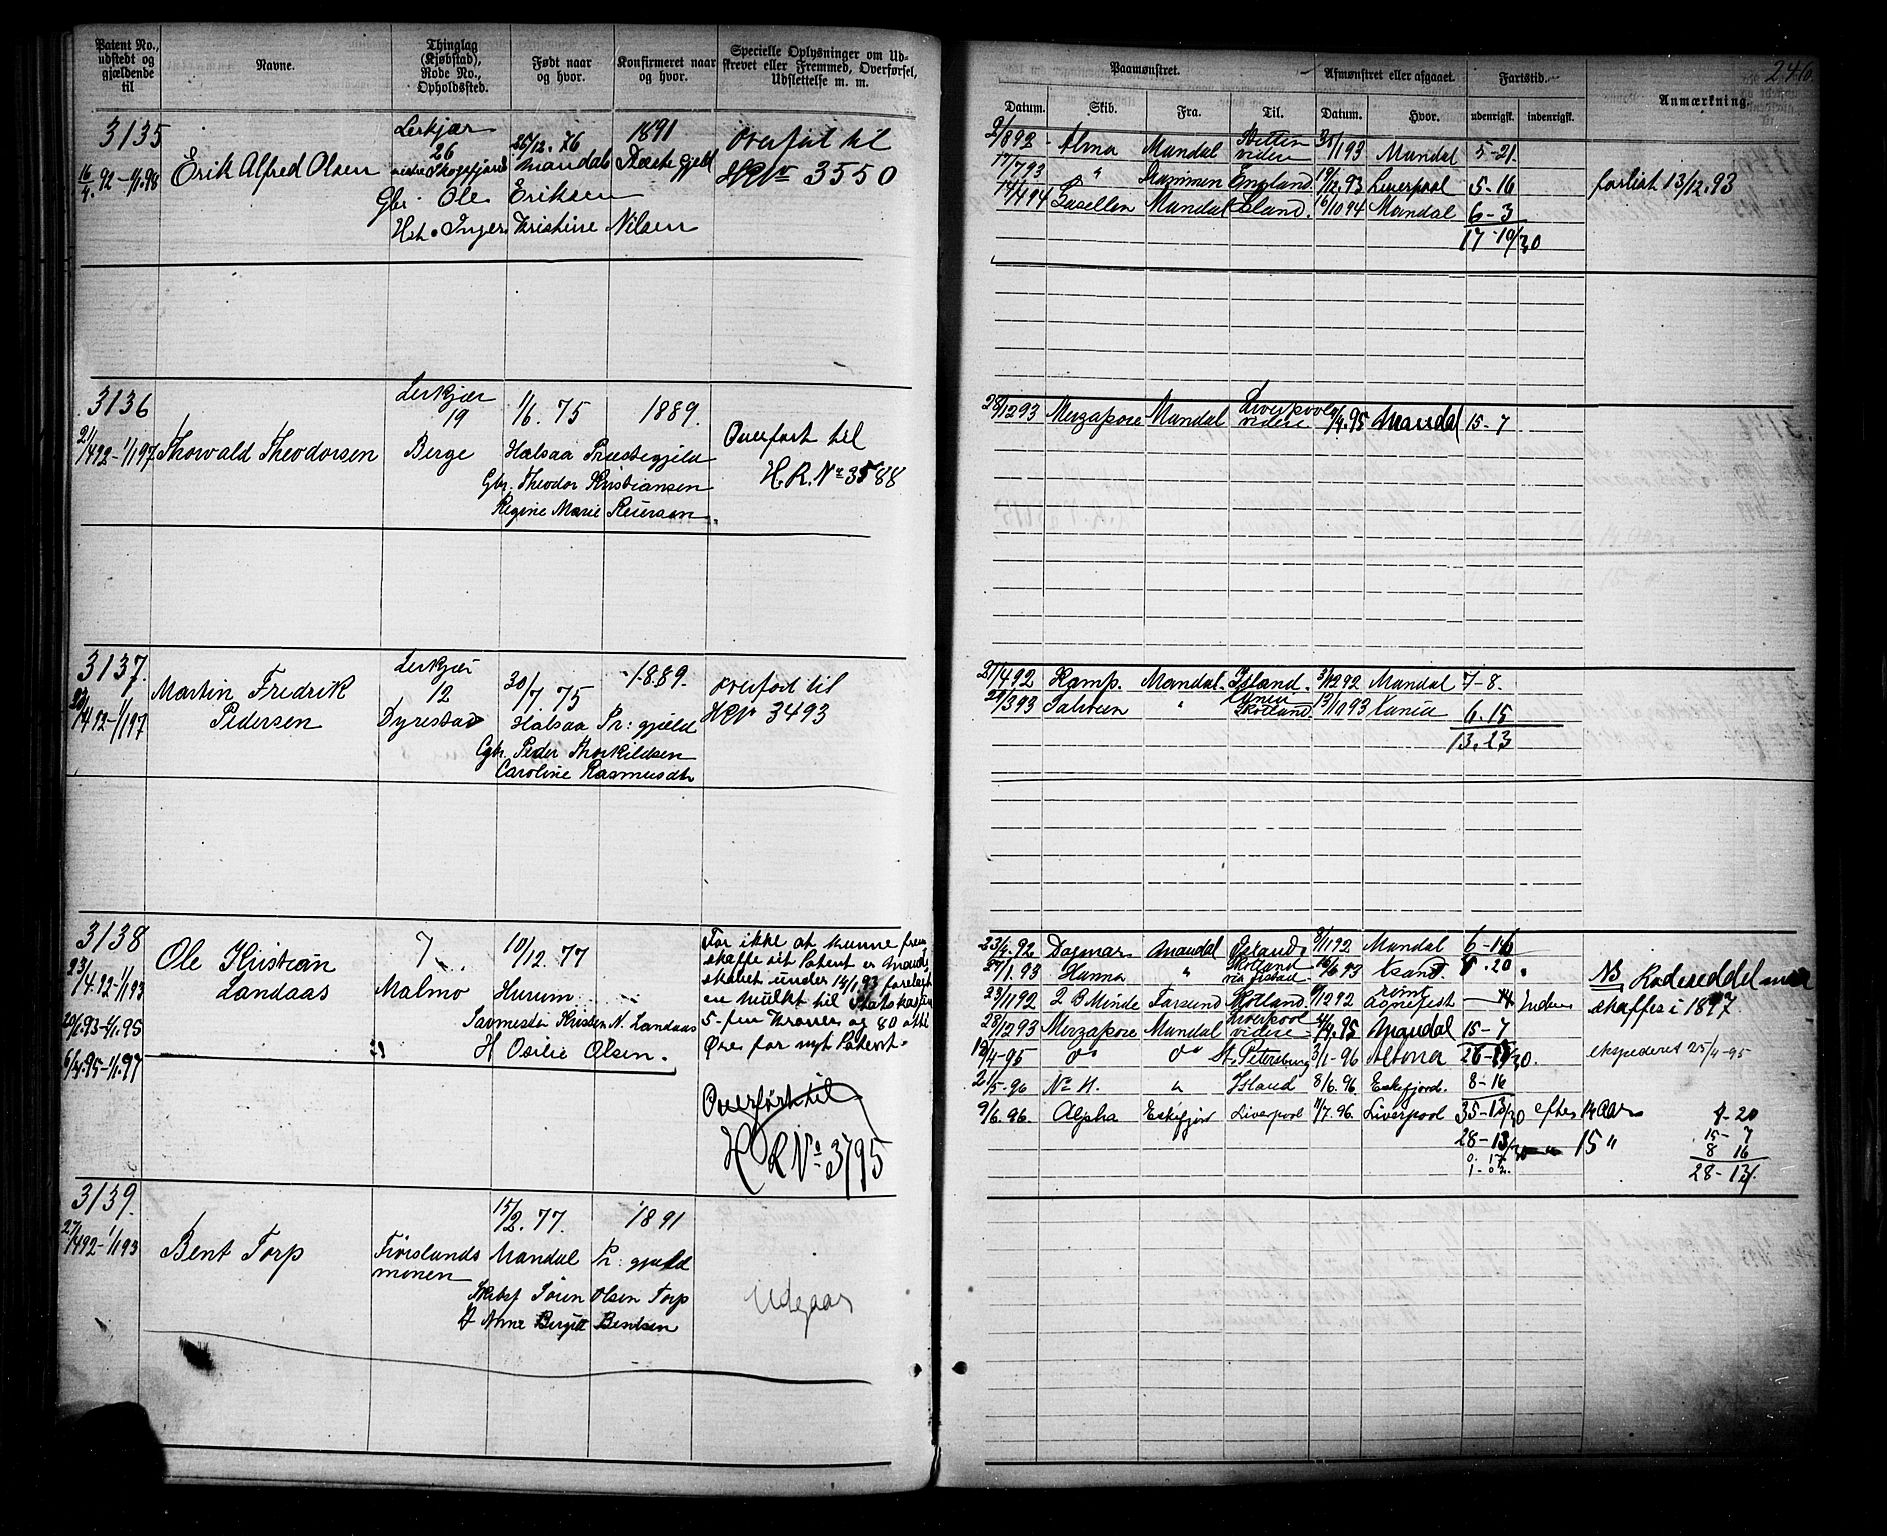 Patent No., udstedt og gjældende til
Navne.
Thinglag (Kjøbstad), Rode No., Opholdssted.
Født naar og hvor.
Konfirmeret naar og hvor.
Specielle Oplysninger om Udskrevet eller Fremmed, Overførsel, Udslettelse m. m.
Paamønstret.
Afmønstret eller afgaaet.
Fartstid.
Anmærkning.
Datum. Skib. Fra. Til. Datum. Hvor. udenrigsk. indenrigsk.
3135
16/4. 92 - 1/1.98
Erik Alfred Olsen
Lerkjær
26
25/12. 76
Mandals Præstegjeld
1891
Gbr. Ole Eriksen
Hst. Inger Kristine Nilsen
Overført til
HRNr 3550
2/8 92 - Alma Mandal videre 1/93 Mandal 5-21
17/7 93 " Drammen England 19/12.93 Liverpool 5-16 forlist 13/12.93
14/4 94 Gasellen Mandal Island. 6/10 94 Mandal 6-3
17-10/30
3136
21/4 92 - 1/1 97
Thorvald Theodorsen
Lerkjær
19
Berge
1/6. 75
1889.
Halsaa Præstegjeld
Gbr. Theodor Kristiansen
Regine Marie Reiersen.
Overført til
H.R.Nr 3588
28/12 93 Mirzapore Mandal Liverpool videre 1/4.95 Mandal 15-7
3137.
1/1 97
Martin Fredrik
Pedersen
Lerkjær
12
Dyrestad
30/7. 75
1889.
Halsaa Pr: gjeld
Gbr. Peder Thorkildsen
Caroline Rasmusdtr
Overført til
HRNr 3493
21/4 92 Kamp. Mandal. Island. 3/12 92 Mandal 7-8.
3 93 " Skotland. 13/10 93 6.15
13.23
3138
23/4.92 - 1/1 93
20/1.93 - 1/1.95
6/4.95 - 1/1.97
Ole Kristian
Landaas
7
Malmø
10/12. 77
Hurum
Kristen N. Landaas
H Osilie Olsen.
For ikke at kunne frem
skaffe sit Patent er Mand
skabet under 13/1.93 forelagt
en mulkt til Statskassen
5- fem Kroner og 80 otti
Øre for nyt Patent.
Overført til
H R Nº 3795
23/4.92 Dagmar Mandal Island 8/11 92 Mandal 6-16
1.93 Hanna " Skotland 6 93 Ksand. . 20
23/11 92 2 B Minde Farsund Skotland. 12 92 Agnefest - 14
28/12 93 Mirzapore Mandal Liverpool videre 4.95 Mandal 15-7
12/4-95 do do St. Petersburg 3/1-96 Altona
2/5-96 No. 4. " Island 8/6.96 Eskefjord. 8-16
9/6.96. Alpha Eskefjord Liverpool 11/7.96. Liverpool 35-13/30 efter 14 Aar
28-13/30 15 "
NB Rodeseddel maa
skaffes i 1897
ekspederet 25/4-95
15-7
8 16
3139.
27/4 92 - 1/1 93
Bent Torp
Frøislands
monen
15/2. 77.
1891
Mandal Pr: gjeld
Søren Olsen Torp
Anne Birgitt Bentsen
Udgaar